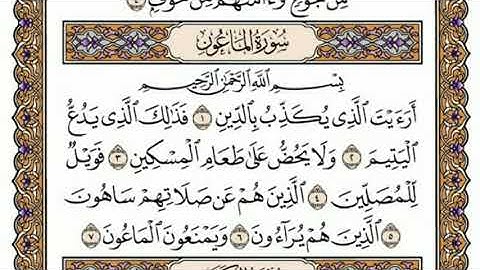 مِّن جُوعٍ وَءَامَنَهُم مِّنْ خَوْفٍۭ ٤
سُورَةُ الْمَاعُونِ
بِسْمِ ٱللَّهِ ٱلرَّحْمَٰنِ ٱلرَّحِيمِ
أَرَءَيْتَ ٱلَّذِى يُكَذِّبُ بِٱلدِّينِ ١ فَذَٰلِكَ ٱلَّذِى يَدُعُّ
ٱلْيَتِيمَ ٢ وَلَا يَحُضُّ عَلَىٰ طَعَامِ ٱلْمِسْكِينِ ٣ فَوَيْلٌ
لِّلْمُصَلِّينَ ٤ ٱلَّذِينَ هُمْ عَن صَلَاتِهِمْ سَاهُونَ
٥ ٱلَّذِينَ هُمْ يُرَآءُونَ ٦ وَيَمْنَعُونَ ٱلْمَاعُونَ ٧